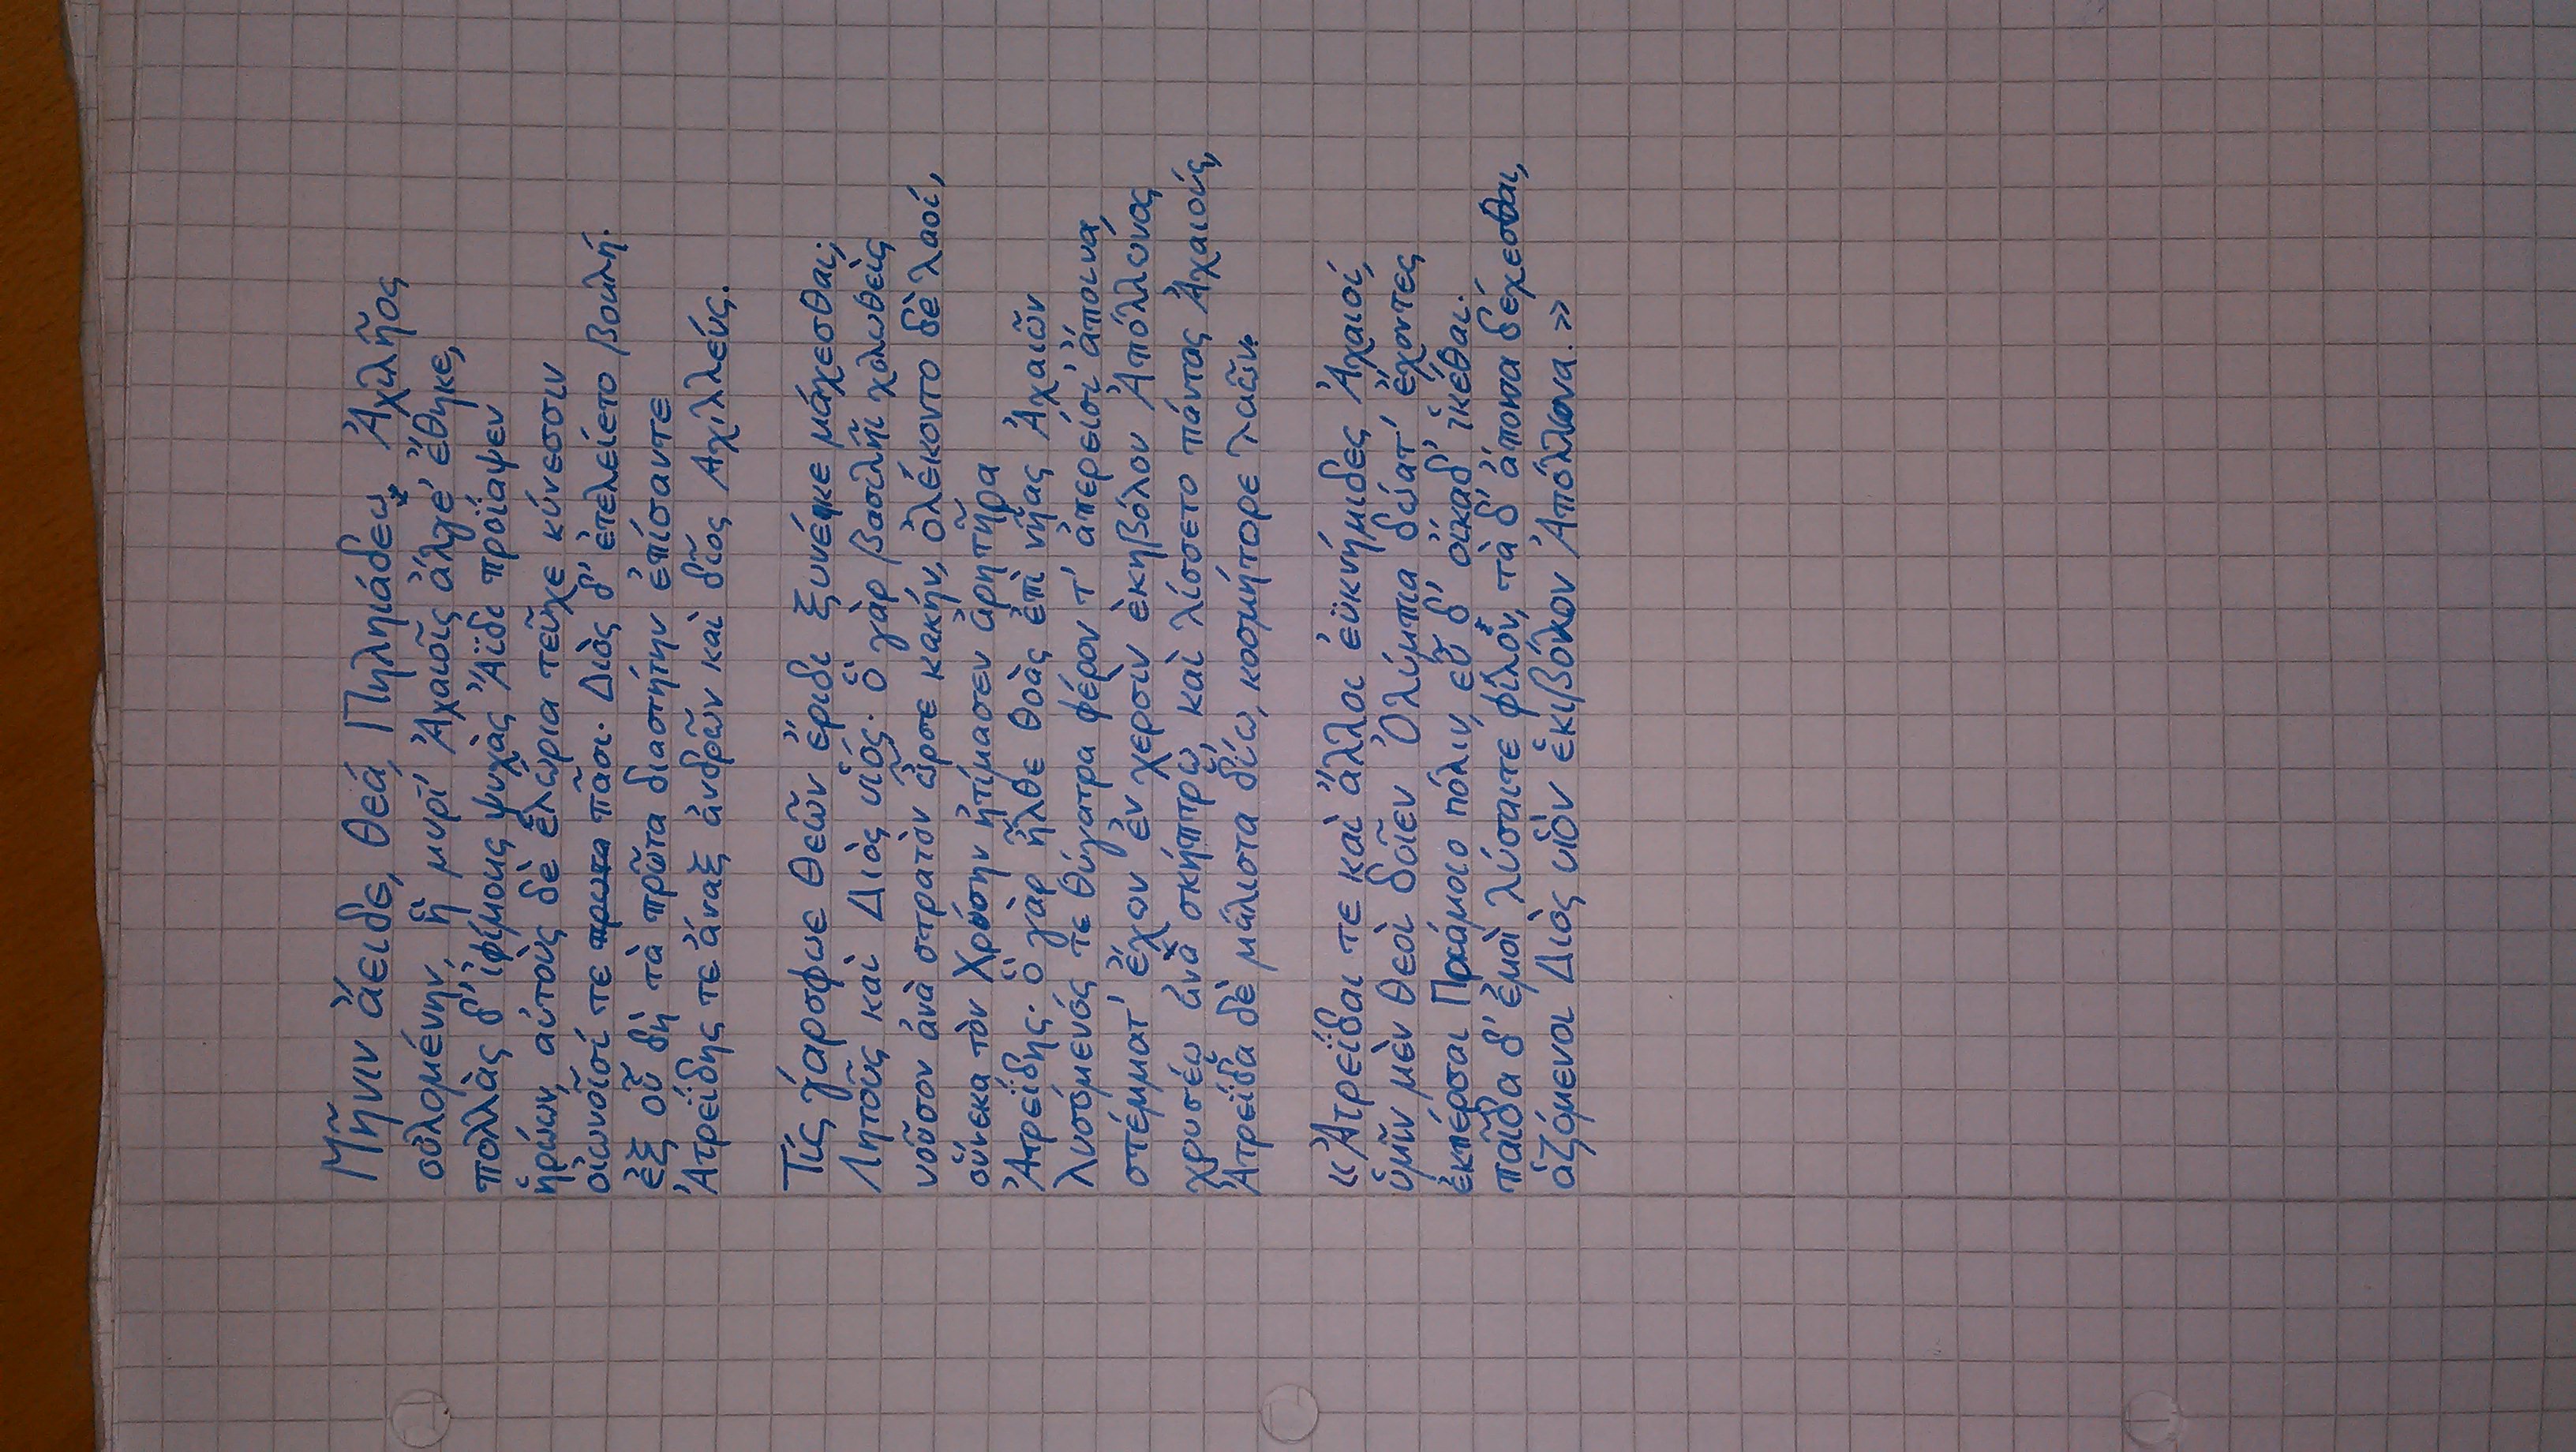 Μῆνιν ἄειδε, θεά, Πηληιάδεω Ἀχιλῆος
οὐλομένην, ἣ μυρί' Ἀχαιοῖς ἄλγε' ἔθηκε,
πολλὰς δ' ἰφίμους ψυχὰς Ἄϊδι προΐαψεν
ἡρώων, αὐτοὺς δὲ ἑλώρια τεῦχε κύνεσσιν
οἰωνοῖσί τε πᾶσι. Διὸς δ' ἐτελείετο βουλή.
ἐξ οὗ δὴ τὰ πρῶτα διαστήτην ἐπίσαντε
Ἀτρεΐδης τε ἄναξ ἀνδρῶν καὶ δῖος Ἀχιλλεύς.
Τίς γάρσφωε θεῶν ἔριδι ξυνέηκε μάχεσθαι;
Λητοῦς καὶ Διὸς υἱός. ὃ γὰρ βασιλῆϊ χολωθεὶς
νοῦσον ἀνὰ στρατὸν ὦρσε κακήν, ὀλέκοντο δὲ λαοί,
οὕνεκα τὸν Χρύσην ἠτίμασεν ἀρητῆρα
Ἀτρεΐδης. ὃ γὰρ ἦλθε θοὰς ἐπὶ νῆας Ἀχαιῶν
λυσόμενός τε θύγατρα φέρον τ' ἀπερείσι' ἄποινα,
στέμματ' ἔχων ἐν χερσὶν ἑκηβόλου Ἀπόλλωνος
χρυσέῳ ἀνὰ σκήπτρῳ, καὶ λίσσετο πάντας Ἀχαιούς,
Ἀτρεΐδα δὲ μάλιστα δύω, κοσμήτορε λαῶν.
«Ἀτρεΐδαι τε καὶ ἄλλοι ἐϋκνήμιδες Ἀχαιοί,
ὑμῖν μὲν θεοὶ δοῖεν Ὀλύμπια δώματ' ἔχοντες
ἐκπέρσαι Πριάμοιο πόλιν, εὖ δ' οἴκαδ' ἱκέθαι.
παῖδα δ' ἐμοὶ λύσαιτε φίλην, τὰ δ' ἄποινα δέχεσθαι,
ἁζόμενοι Διὸς υἱὸν ἑκιβόλον Ἀπόλλωνα.»